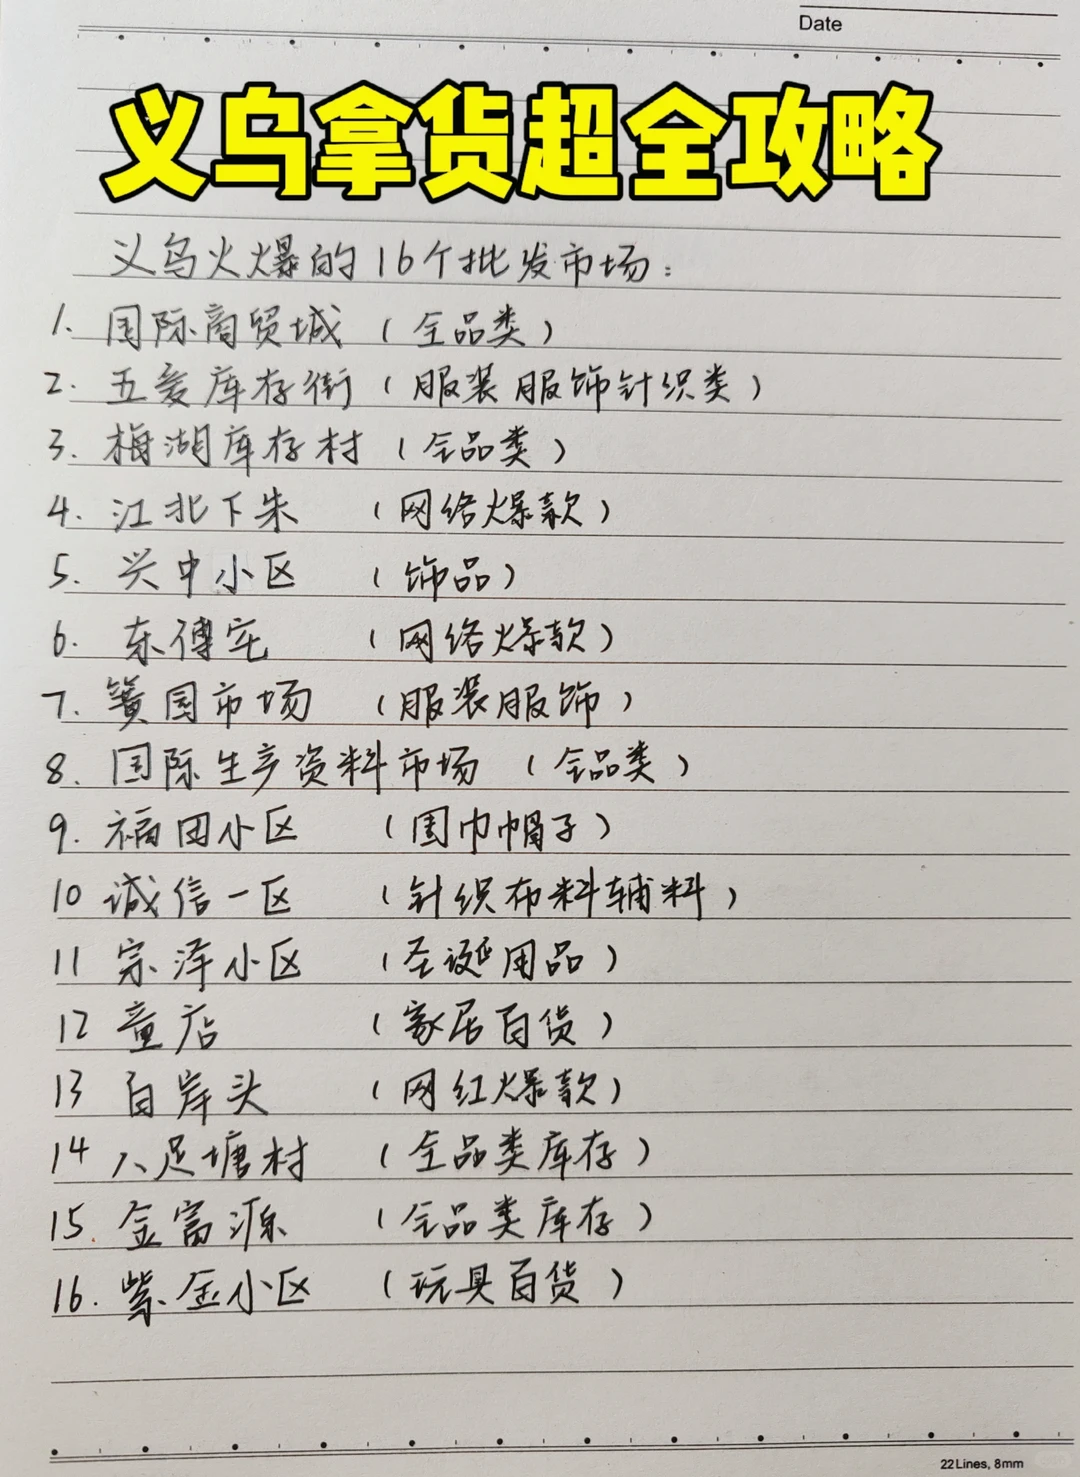 Date
义乌拿货超全攻略
义乌火爆的16个批发市场：
1. 国际商贸城（全品类）
2. 五爱库存街（服装服饰针织类）
3. 梅湖库存村（全品类）
4. 江北下朱（网络爆款）
5. 兴中小区（饰品）
6. 东傅宅（网络爆款）
7. 篁园市场（服装服饰）
8. 国际生产资料市场（全品类）
9. 福田小区（围巾帽子）
10 诚信一区（针织布料辅料）
11 宗泽小区（圣诞用品）
12 童店（家居百货）
13 白岸头（网红爆款）
14 八足塘村（全品类库存）
15. 金富源（全品类库存）
16. 紫金小区（玩具百货）
22Lines, 8mm